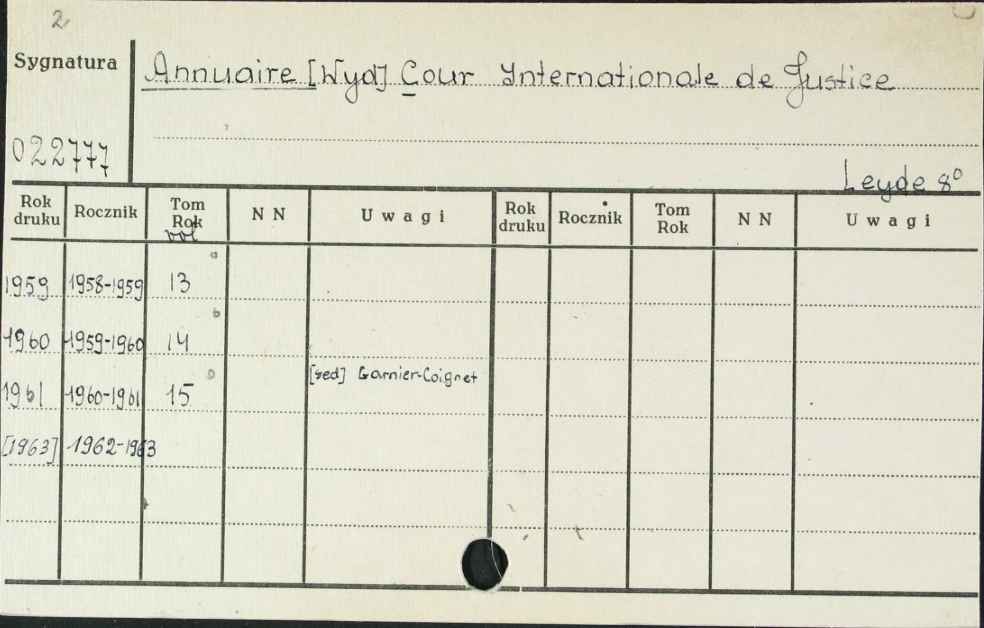 2
Sygnatura
Annuaire [Wyd] Cour Internationale de Justice
022777
Leyde 8°
Rok druku Rocznik Tom Rok vol N N Uwagi Rok druku Rocznik Tom Rok N N Uwagi
1959 1958-1959 13 a
1960 1959-1960 14 b
[red] Garnier-Coignet
1961 1960-1961 15
[1963] 1962-1963